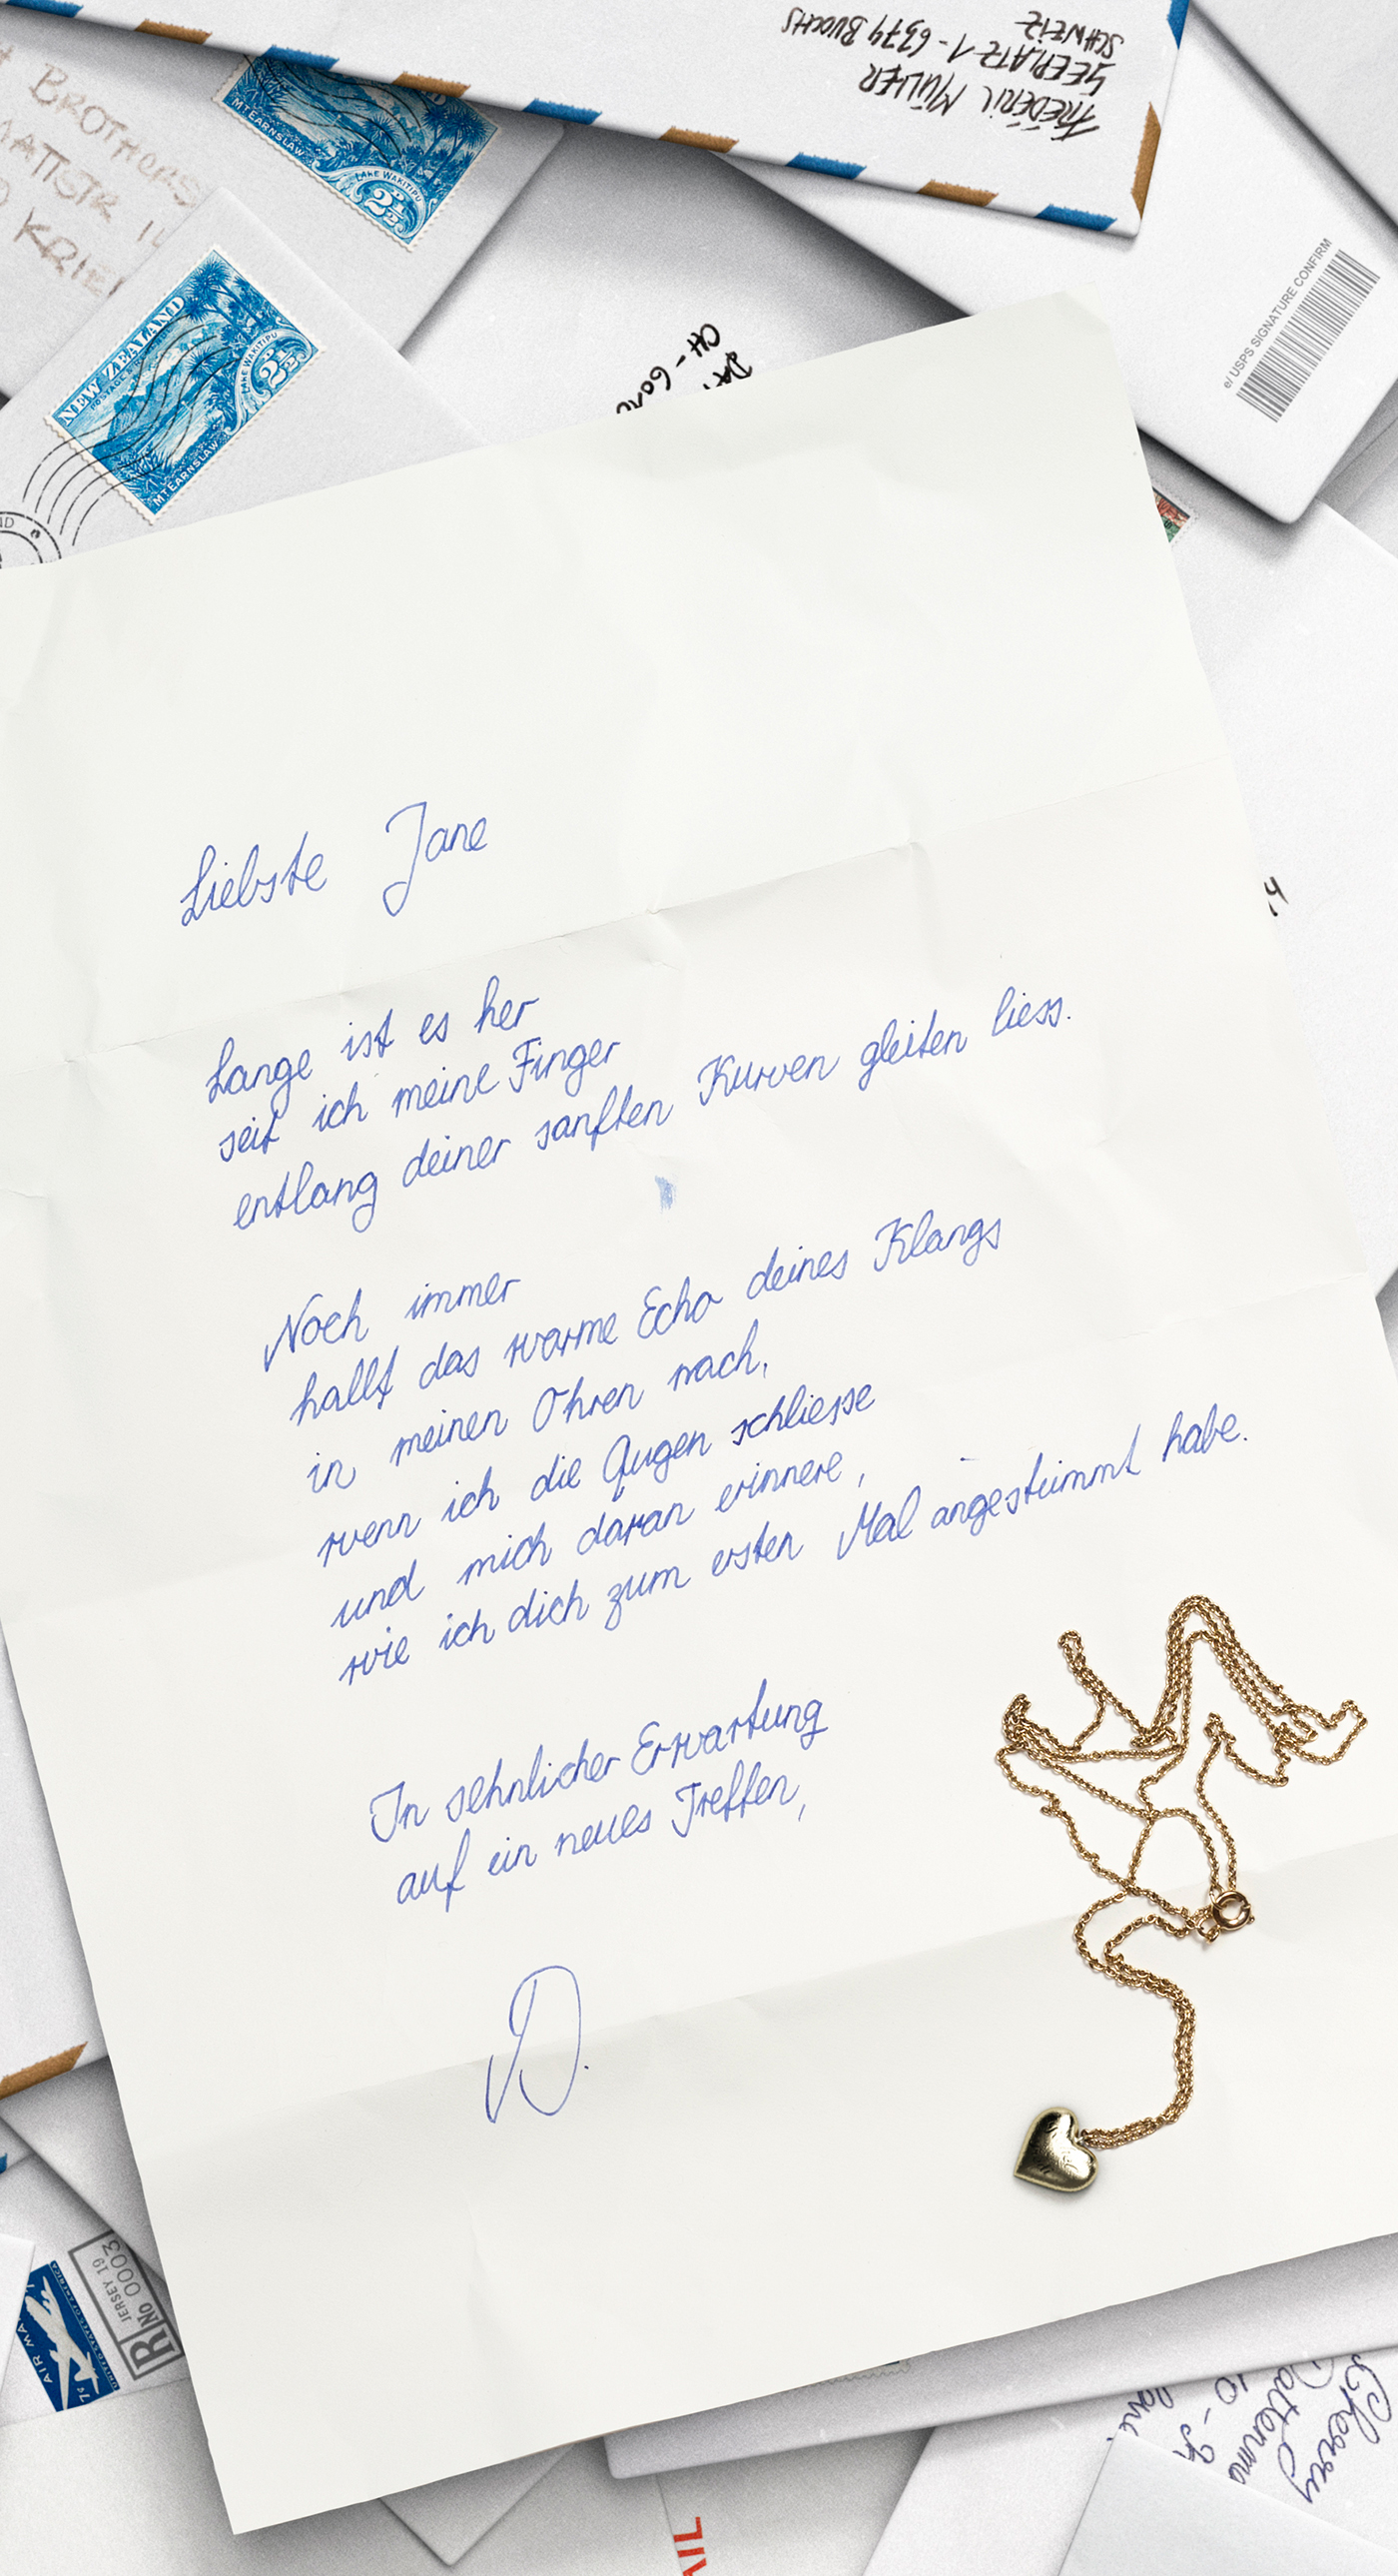 FRÉDÉRIC MÜLLER
SEEPLATZ 1 - 6374 BUOCHS
SCHWEIZ
BROTHORS
MT EARNSLAW
LAKE WAKITIPU
2½D
NEW ZEALAND
POSTAGE
LAKE WAKITIPU
2½D
MT EARNSLAW
e/ USPS SIGNATURE CONFIRM
CH-60
Liebste Jane
Lange ist es her
seit ich meine Finger
entlang deiner sanften Kurven gleiten liess.
Noch immer
hallt das warme Echo deines Klangs
in meinen Ohren nach,
wenn ich die Augen schliesse
und mich daran erinnere,
wie ich dich zum ersten Mal angestimmt habe.
In sehnlicher Erwartung
auf ein neues Treffen,
D.
JERSEY 19
R No 0003
AIR MA
UNITED STATES OF AMERICA
7¢
Cherry
AIL